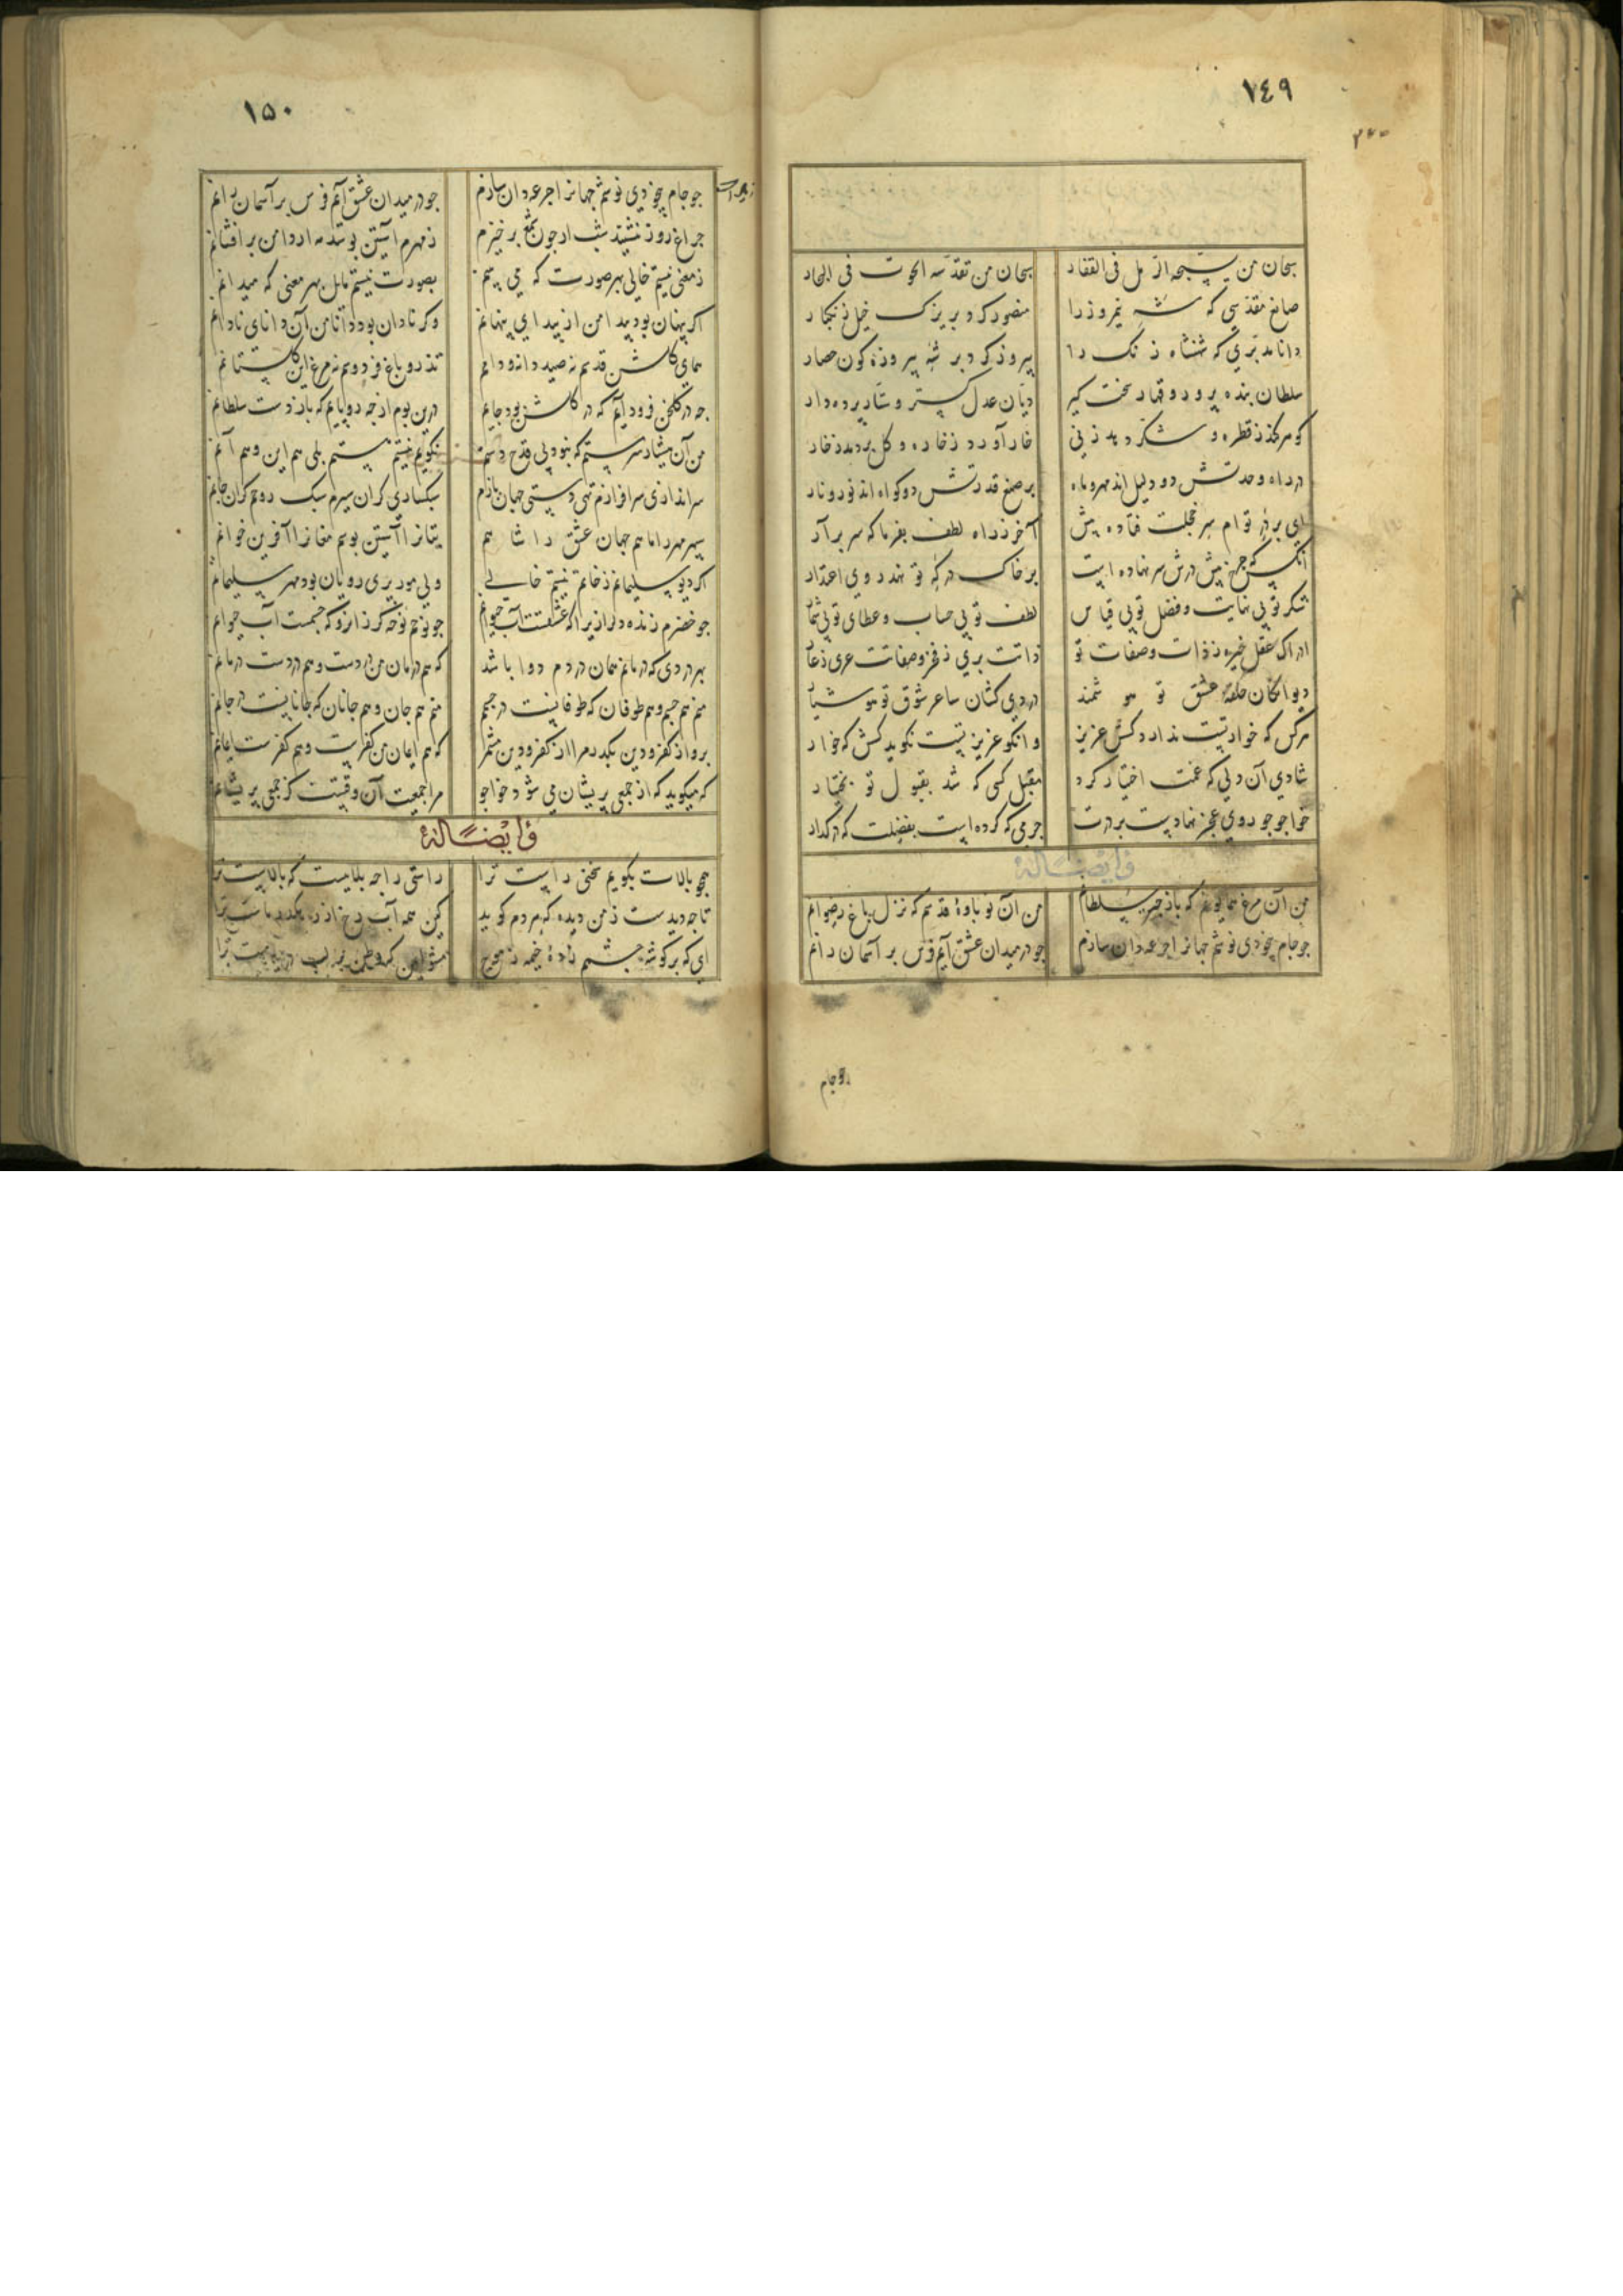 ١٤٩
سبحان من یسبحه الرمل فی القفار
سبحان من تقدسه الحوت فی البحار
صانع مقدسی که شه نیمروز را
منصور کرد بر یزک خیل زنگبار
دانا مدبری که شهنشاه زنک را
پیروز کرد بر شه پیروزه کون حصار
سلطان بنده پرور و قهار سخت کیر
دیان عدل کستر و ستار برده دار
کوهر کند ز قطره و شکر دهد ز نی
خار آورد ز خاره و کل بردمد ز خار
در راه وحدتش دو دلیل اند مهر و ماه
بر صنع قدرتش دو کواه اند نور و نار
ای بر در تو ام سر خجلت فتاده پیش
آخر ز راه لطف بفرما که سر برآر
آنکس که جرخ پیش درش سر نهاده است
بر خاک درکه تو نهد روی اعتذار
شکر تو بی نهایت و فضل تو بی قیاس
لطف تو بی حساب و عطای تو بی شمار
ادراک عقل خیره ز ذات و صفات تو
ذاتت بری ز فخر و صفاتت عری ز عار
دیوانکان حلقه عشق تو هوشمند
دردی کشان ساغر شوق تو هوشیار
هرکس که خوار تست ندارد کسش عزیز
وانکو عزیز تست نکوید کسش که خوار
شادی آن دلی که غمت اختیار کرد
مقبل کسی که شد بقبول تو بختیار
خواجو جو روی عجز نهادست بر درت
جرمی که کرده است بفضلت که درکذار
وایضاً له
من آن مرغ همایونم که باز جتر سلطانم
من آن نوباوهٔ قدسم که نزل باغ رضوانم
جو جام بیخودی نوشم جهانرا جرعه دان سازم
جو در میدان عشق آیم فرس بر آسمان رانم
جو جام
١٥٠
جو جام بیخودی نوشم جهانرا جرعه دان سازم
جو در میدان عشق آیم فرس بر آسمان رانم
جراغ روز بنشیند شب ار جون شمع برخیزم
ز مهرم آستین بوسد مه ار دامن برافشانم
ز معنی نیستم خالی بهر صورت که می بینم
بصورت نیستم مایل بهر معنی که میدانم
اکر پنهان بود پیدا من از پیدایی پنهانم
وکر نادان بود دانا من آن دانای نادانم
همای کلشن قدسم نه صید دانه و دامم
تذرو باغ فردوسم نه مرغ این کلستانم
جه در کلخن فرود آیم که در کلشن بود جایم
درین بوم از جه رو پایم که باز دست سلطانم
من آن هشیار سرمستم که نبود بی قدح دستم
نکویم نیستم هستم بلی هم این و هم آنم
سراندازی سرافرازم تهی دستی جهان بازم
سبکساری کران سیرم سبک روحی کران جانم
سپهر مهر را ماهم جهان عشق را شاهم
بتانرا آستین بوسم مغانرا آفرین خوانم
اکر دیو سلیمانم ز خاتم نیستم خالی
ولی مور بری رویان بود مهر سلیمانم
جو خضرم زنده دل ازیرا که عشقست آب حیوانم
جو نوحم نوحه کر ز انرو که جشمست آب طوفانم
بهر دردی که درمانم همان دردم دوا باشد
که هم درمان من دردست و هم دردست درمانم
منم هم جسم و هم طوفان که طوفانیست در جسمم
منم هم جان و هم جانان که جانانیست در جانم
برو از کفر و دین بکذر مرا از کفر و دین مشمر
که هم ایمان من کفرست و هم کفرست ایمانم
که میکوید که از جمعی پریشان می شود خواجو
مرا جمعیت آن وقتست کز جمعی پریشانم
وایضاً له
جو بالات بکویم سخنی راست ترا
راستی را جه بلاییست که بالاست ترا
تا جه دیدست ز من دیده که هردم کوید
کین همه آب رخ از رهکذر ماست ترا
ای که بر کوشه جشمم زدهٔ خیمه ز موج
مشو ایمن که وطن بر لب دریاست ترا